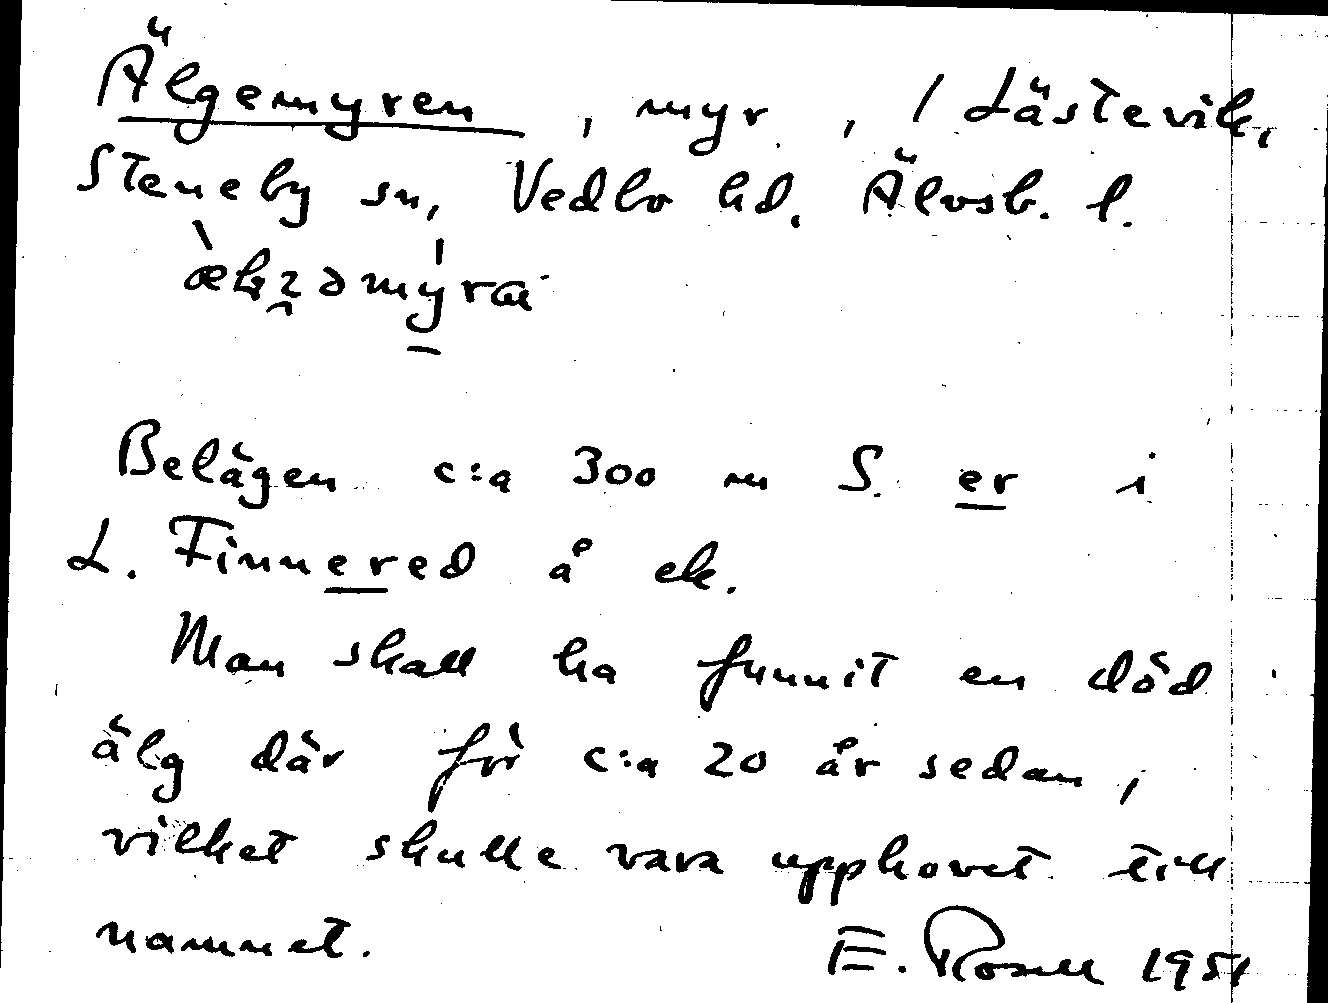 Älgemyren, myr, / Låstevik,
Steneby sn, Vedbo hd. Älvsb. l.
Belägen c:a 300 m S. er i
L. Finnered å ek.
Man skall ha funnit en död
älg där för c:a 20 år sedan,
vilket skulle vara upphovet till
namnet. E. Rosell 1951